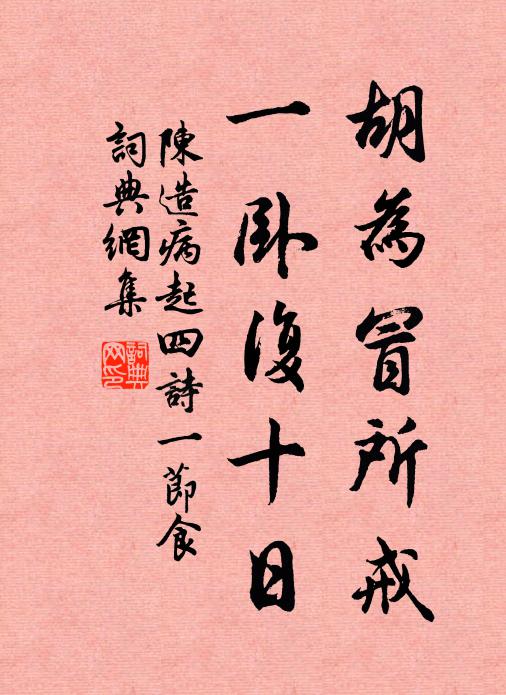 胡為冒所戒
一臥復十日
陳造病起四詩一節食
詞典網集
詞典網印